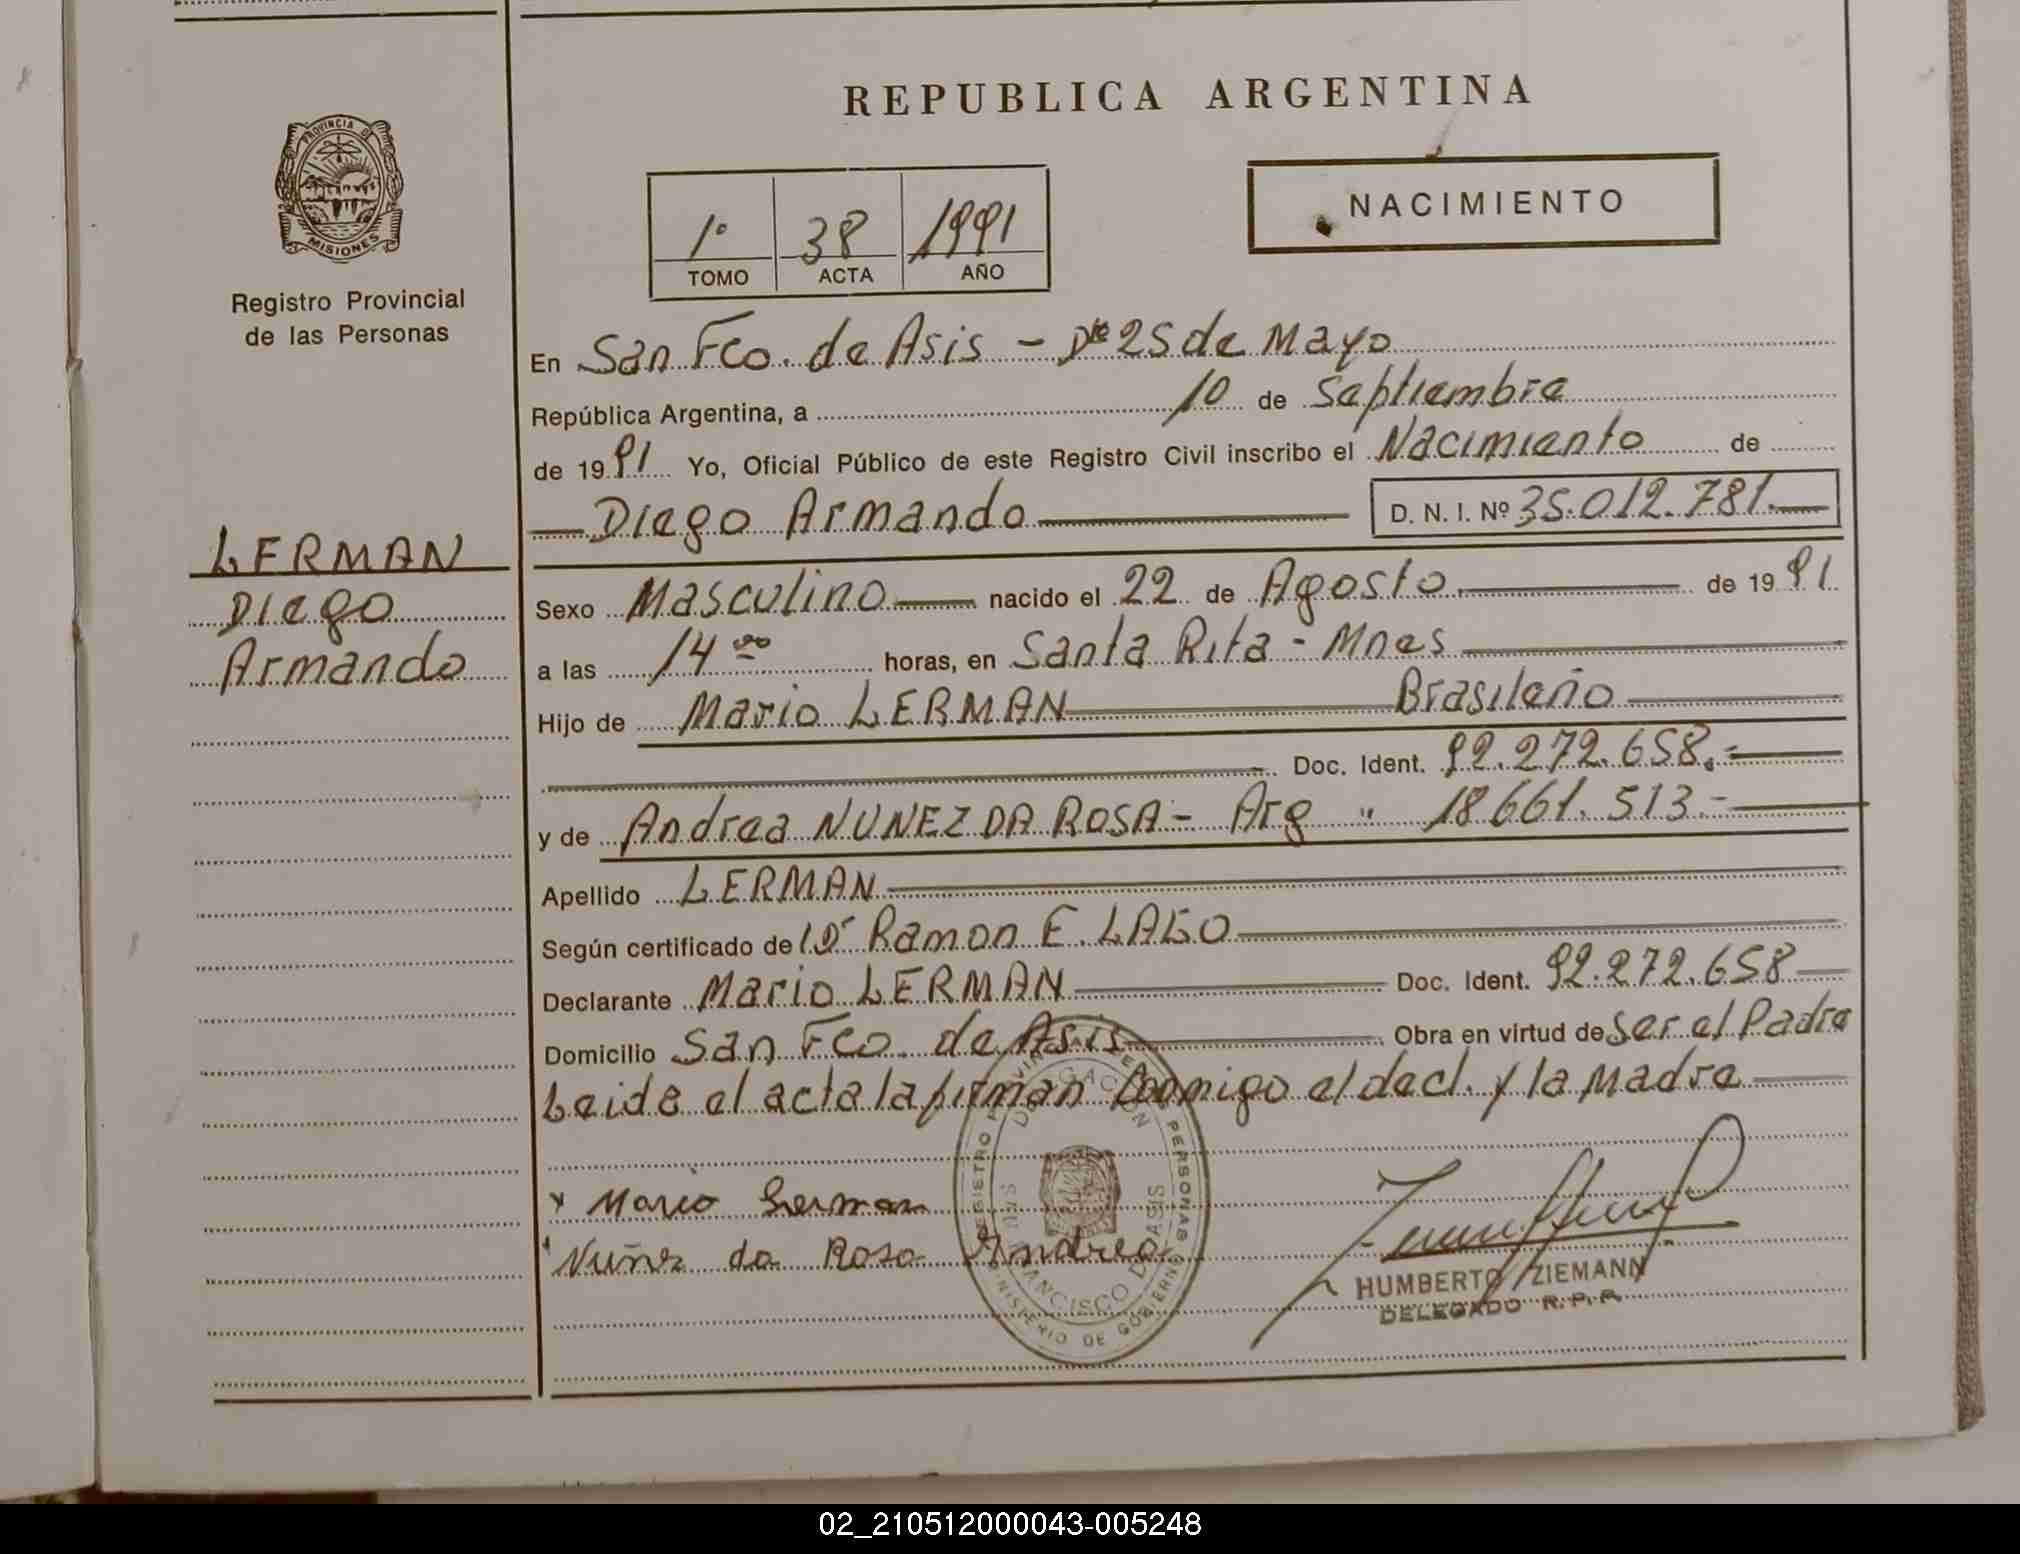 REPUBLICA ARGENTINA
PROVINCIA DE
MISIONES
Registro Provincial
de las Personas
1º 38 1991
TOMO ACTA AÑO
NACIMIENTO
En San Fco. de Asis - Dto 25 de Mayo
República Argentina, a 10 de Septiembre
de 1991 Yo, Oficial Público de este Registro Civil inscribo el Nacimiento de
Diego Armando D. N. I. Nº 35.012.781.
LERMAN
Diego
Armando
Sexo Masculino nacido el 22 de Agosto de 1991
a las 14 00 horas, en Santa Rita - Mnes
Hijo de Mario LERMAN Brasileño
Doc. Ident. 92.272.658.=
y de Andrea NUNEZ DA ROSA - Arg " 18.661.513.-
Apellido LERMAN
Según certificado de Ramon E. LAGO
Declarante Mario LERMAN Doc. Ident. 92.272.658
Domicilio San Fco. de Asis Obra en virtud de Ser el Padre
Leida el acta la firman Conmigo el decl. y la Madre
x Mario Lerman
Nuñez da Rosa Andrea
REGISTRO PROVINCIAL DE LAS PERSONAS
DELEGACION
SAN FRANCISCO DE ASIS
MINISTERIO DE GOBIERNO
HUMBERTO ZIEMANN
DELEGADO R.P.P.
02_210512000043-005248